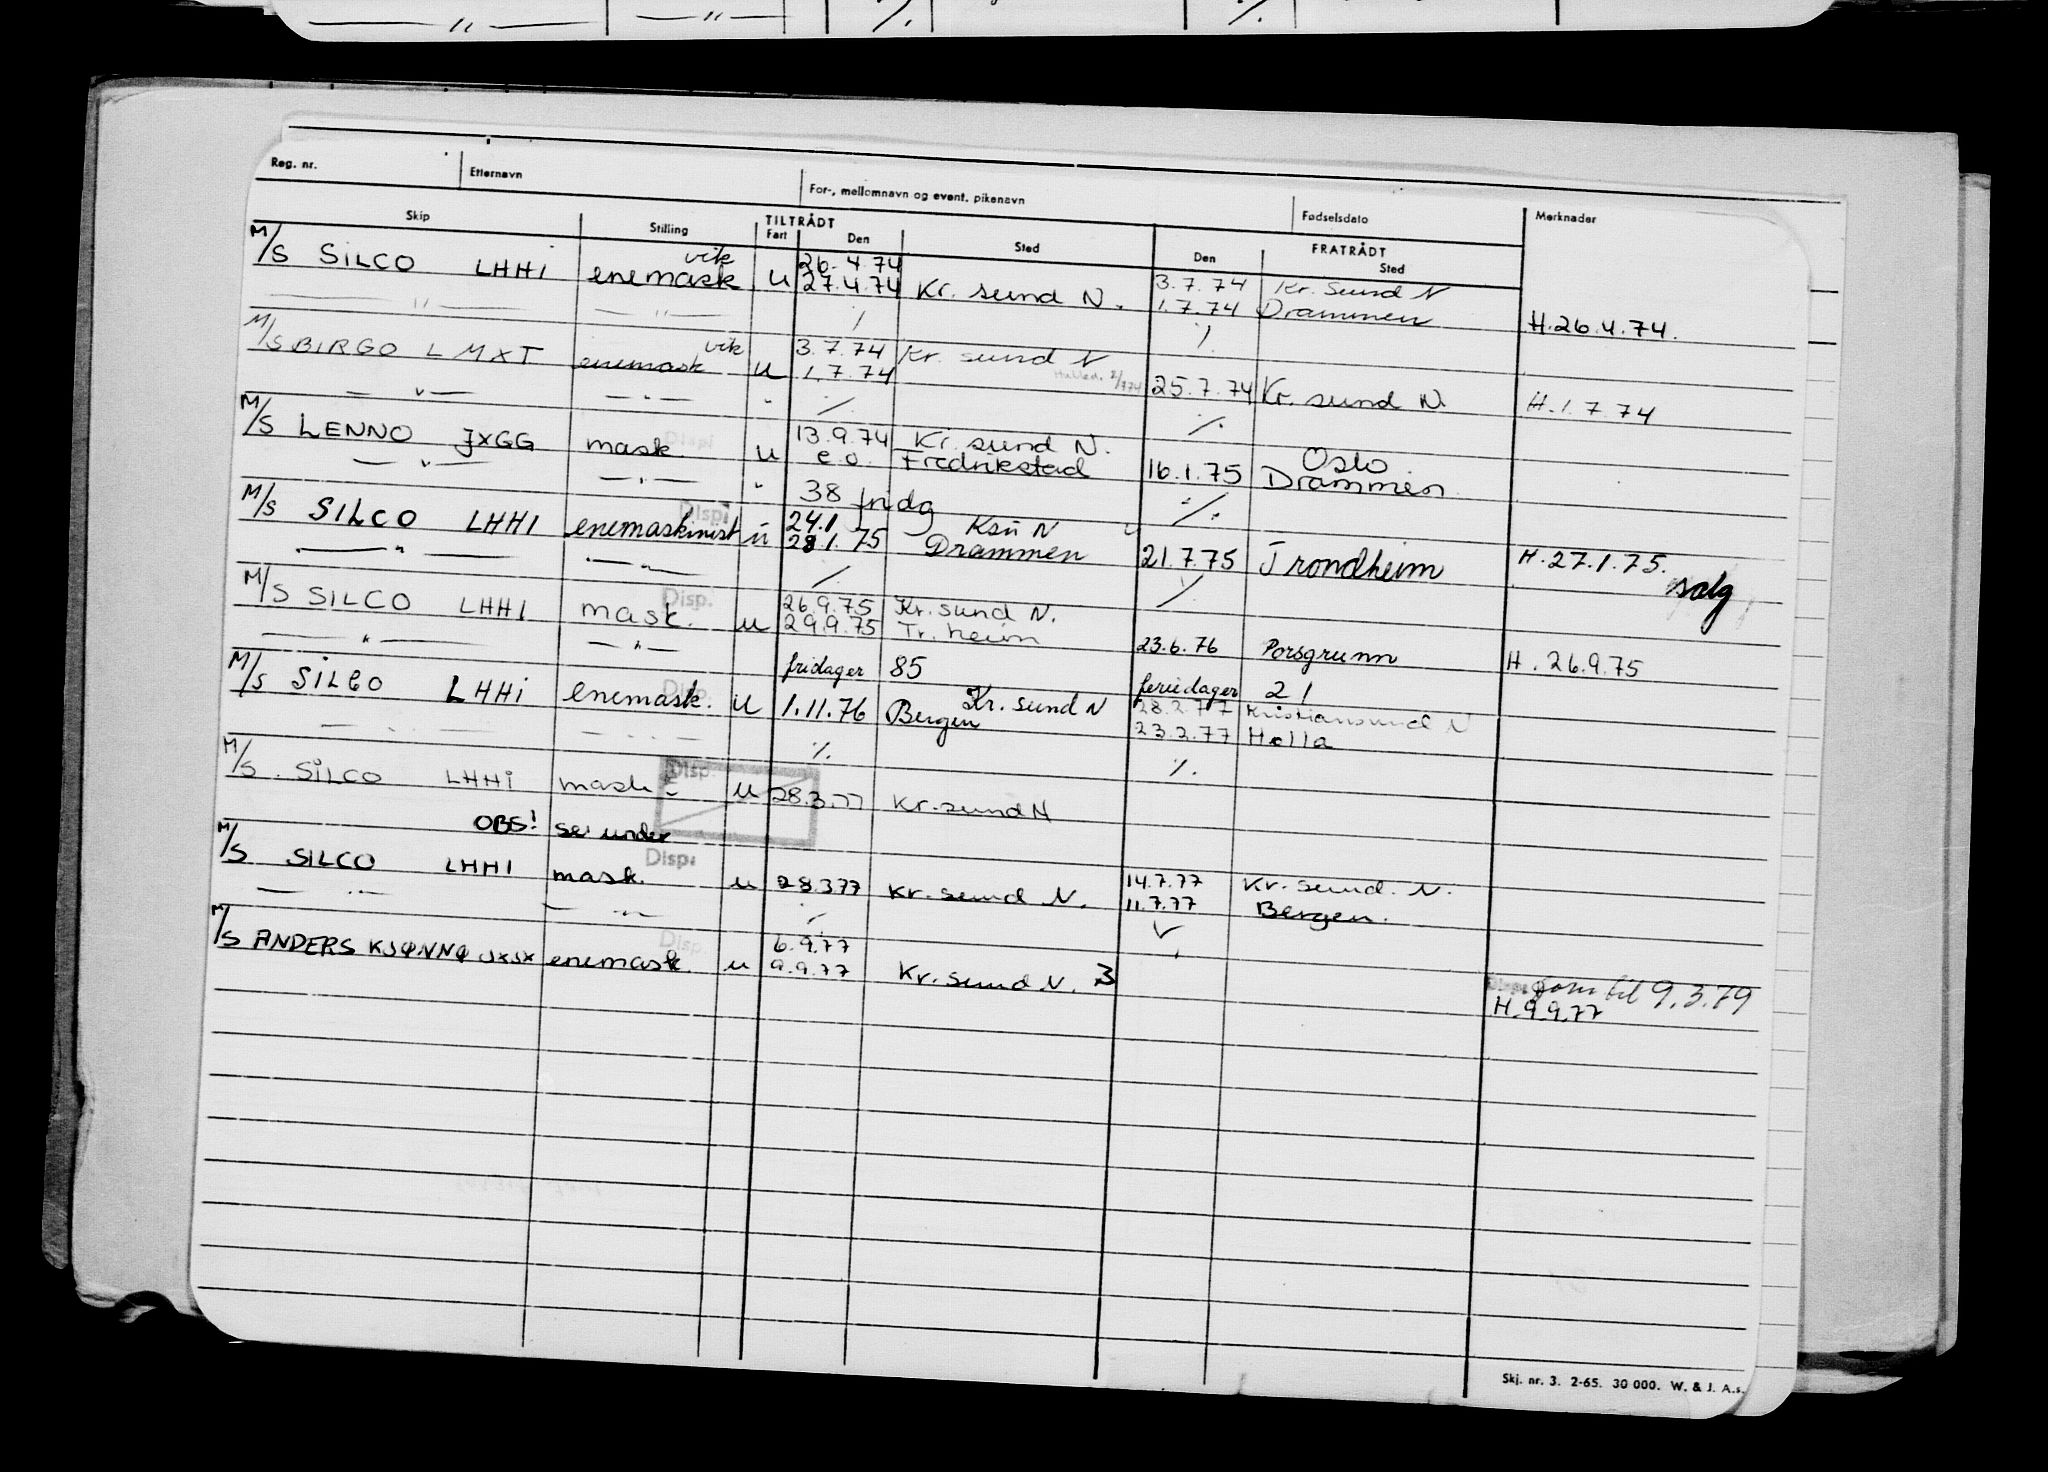 — " — — " — /. /.
Reg. nr. Etternavn For-, mellomnavn og event. pikenavn Fødselsdato Merknader
Skip Stilling TILTRÅDT FRATRÅDT
Fart Den Sted Den Sted
vik 26.4.74 3.7.74 Kr. Sund N
M/S SILCO LHHI enemask u 27.4.74 Kr. sund N. 1.7.74 Drammen H.26.4.74.
— " — — " — / /.
vik 3.7.74 Kr. sund N
M/S BIRGO LMXT enemask u 1.7.74 25.7.74 Kr. sund N. H.1.7.74
— " — — " — " /. /.
13.9.74 Kr. sund N. Oslo
M/S LENNO JXGG mask. u e.o. Fredrikstad 16.1.75 Drammen
— " — — " — " 38 fridg /.
Disp. 24.1 Ksu N
M/S SILCO LHHI enemaskinist u 28.1.75 Drammen 21.7.75 Trondheim H.27.1.75. salg
— " — — " — / /
Disp. 26.9.75 Kr. sund N.
M/S SILCO LHHI mask. u 29.9.75 Tr. heim 23.6.76 Porsgrunn H.26.9.75
— " — — " — fridager 85 feriedager 21
Disp. Kr. sund N 28.2.77 Kristiansund N
M/S SILCO LHHI enemask. u 1.11.76 Bergen 23.2.77 Holla
— " — — " — /. /.
Disp.
M/S SILCO LHHI mask u 28.3.77 Kr. sund N
OBS! se under
Disp. 14.7.77 Kr. sund. N.
M/S SILCO LHHI mask. u 28.3.77 Kr. sund N. 11.7.77 Bergen.
— " — — " — /
Disp. 6.9.77
M/S ANDERS KJØNNØ JXJX enemask. u 9.9.77 Kr. sund N. 3 Disp. til 9.3.79
H.9.9.77
Skj. nr. 3. 2-65. 30 000. W. & J. A.s.